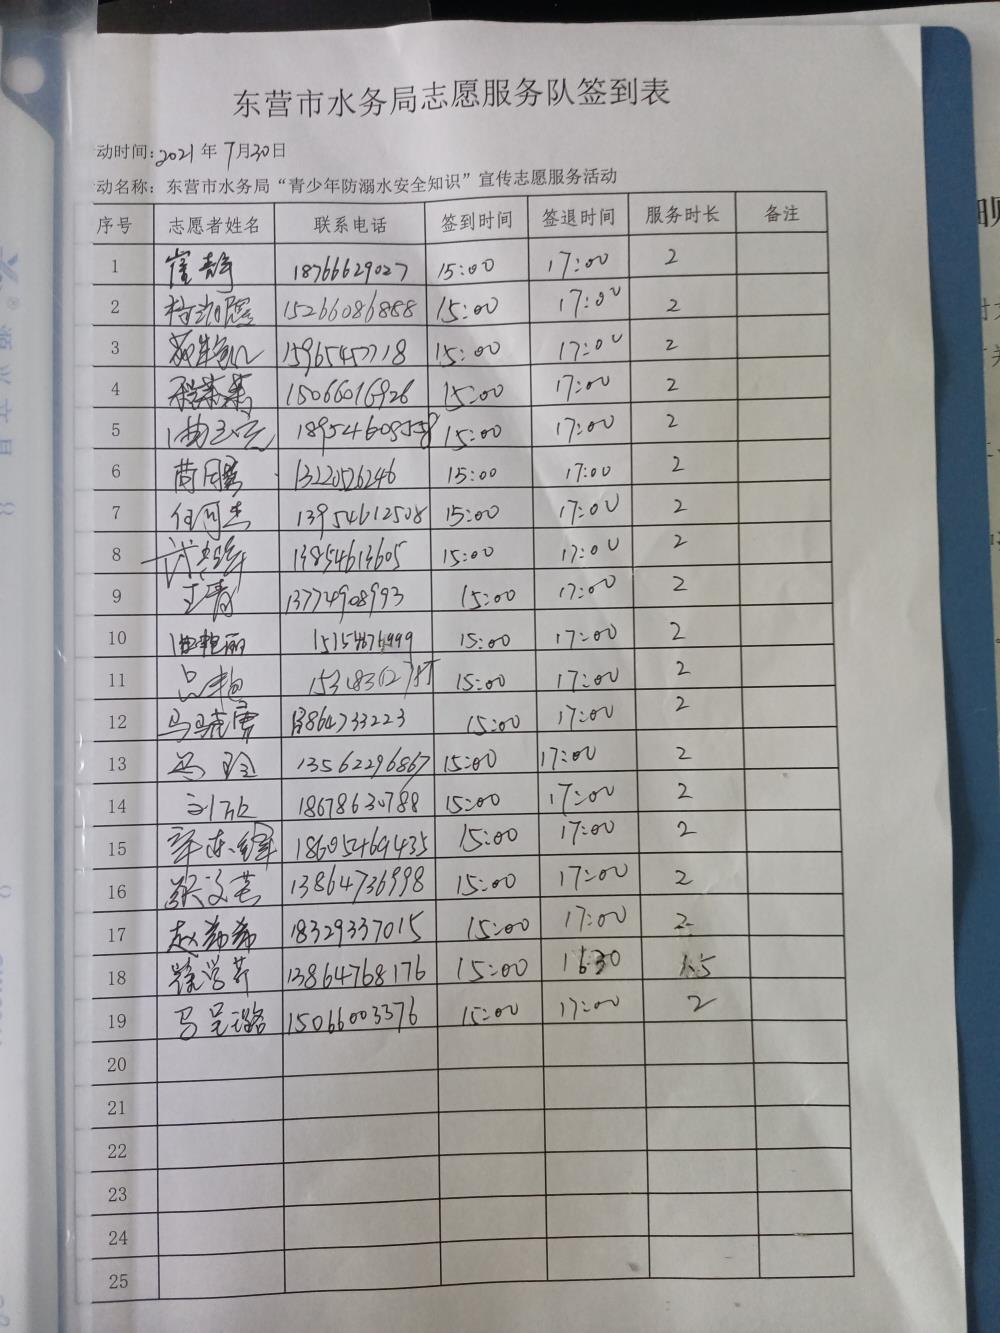 东营市水务局志愿服务队签到表
动时间：2021年7月30日
动名称：东营市水务局“青少年防溺水安全知识”宣传志愿服务活动
序号 志愿者姓名 联系电话 签到时间 签退时间 服务时长 备注
1 崔静 18766629027 15:00 17:00 2
2 15266086888 15:00 17:00 2
3 15965457718 15:00 17:00 2
4 15066016926 15:00 17:00 2
5 15:00 17:00 2
6 15:00 17:00 2
7 13954612508 15:00 17:00 2
8 13854613605 15:00 17:00 2
9 王青 13774908993 15:00 17:00 2
10 15154676999 15:00 17:00 2
11 吕艳 15:00 17:00 2
12 马晓雪 13864733223 15:00 17:00 2
13 13562296867 15:00 17:00 2
14 刘欣 18678630788 15:00 17:00 2
15 18605469435 15:00 17:00 2
16 张文芸 13864736998 15:00 17:00 2
17 赵茜茜 18329337015 15:00 17:00 2
18 徐学芹 13864768176 15:00 16:30 1.5
19 马呈璐 15066003376 15:00 17:00 2
20
21
22
23
24
25